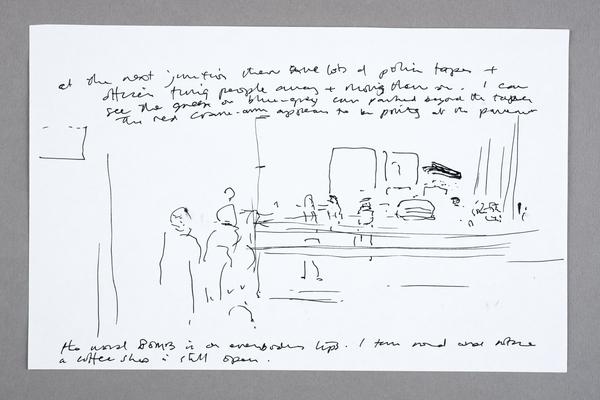 at the next junction there are lots of police tapes +
officers turning people away + moving them on. I can
see the green or blue-grey cars parked beyond the tapes
the red crane-arm appears to be pointing at the pavement
the word BOMB is on everybodies lips. I turn round and notice
a coffee shop is still open.